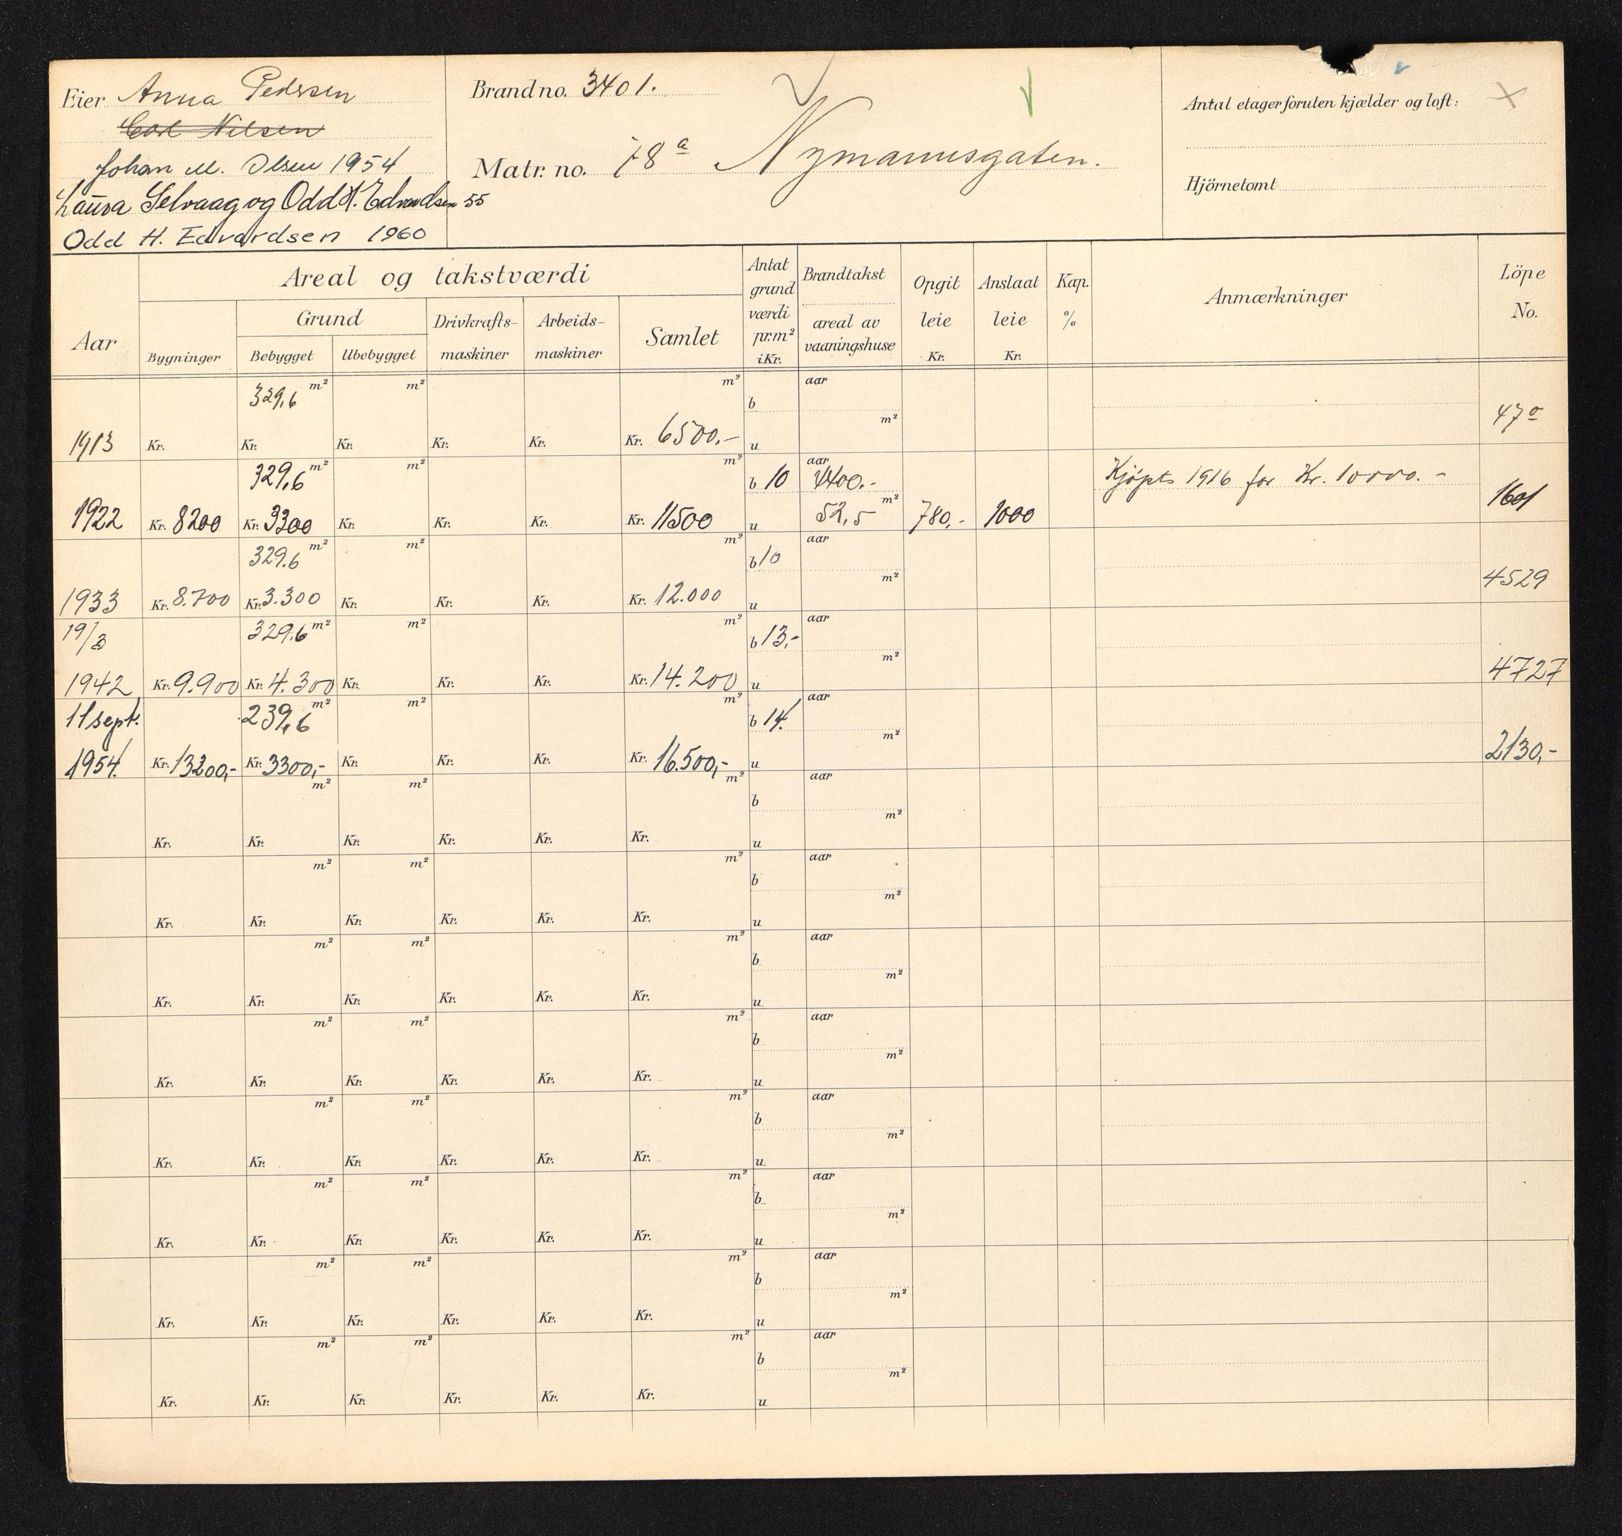 Eier Anna Pedersen
Carl Nilsen
Johan M. Olsen 1954
Laura Selvaag og Odd H. Edvardsen 55
Odd H. Edvardsen 1960
Brand no. 3401.
Matr. no. 78a Nymannsgaten.
Antal etager foruten kjælder og loft:
Hjörnetomt
Aar
Areal og takstværdi
Bygninger
Grund
Bebygget Ubebygget
Drivkrafts-
maskiner
Arbeids-
maskiner
Samlet
Antat
grund
værdi
pr. m²
i Kr.
Brandtakst
areal av
vaaningshuse
Opgit
leie
Kr.
Anslaat
leie
Kr.
Kap.
%
Anmærkninger
Löpe
No.
329,6 m² m² m² b aar
m²
1913 Kr. Kr. Kr. Kr. Kr. Kr. 6500.- u 470
329,6 m² m² m² b 10 aar 4400.- Kjøpt 1916 for Kr. 10000.-
1922 Kr. 8200 Kr. 3300 Kr. Kr. Kr. Kr. 11500 u 52,5 m² 780,- 1000 1601
329.6 m² m² m² b 10 aar
m²
1933 Kr. 8.700 Kr. 3.300 Kr. Kr. Kr. Kr. 12.000 u 4529
19/3 329.6 m² m² m² b 13,- aar
m²
1942 Kr. 9.900 Kr. 4.300 Kr. Kr. Kr. Kr. 14.200 u 4727
11 sept. 239,6 m² m² m² b 14. aar
m²
1954. Kr. 13200,- Kr. 3300,- Kr. Kr. Kr. Kr. 16.500,- u 2130,-
m² m² m² aar
b
m²
Kr. Kr. Kr. Kr. Kr. Kr. u
m² m² m² aar
b
m²
Kr. Kr. Kr. Kr. Kr. Kr. u
m² m² m² aar
b
m²
Kr. Kr. Kr. Kr. Kr. Kr. u
m² m² m² aar
b
m²
Kr. Kr. Kr. Kr. Kr. Kr. u
m² m² m² aar
b
m²
Kr. Kr. Kr. Kr. Kr. Kr. u
m² m² m² aar
b
m²
Kr. Kr. Kr. Kr. Kr. Kr. u
m² m² m² aar
b
m²
Kr. Kr. Kr. Kr. Kr. Kr. u
m² m² m² aar
b
m²
Kr. Kr. Kr. Kr. Kr. Kr. u